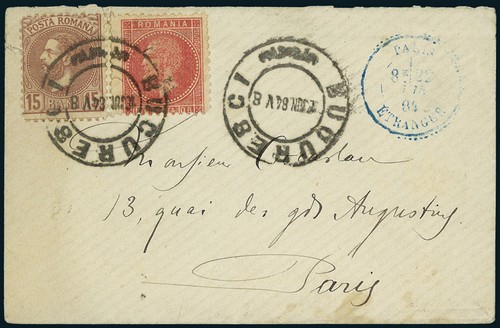 POSTA ROMANA
15 BANI 15
ROMANIA
BUCURESCI
JUN. 84 V 8
BUCURESCI
JUN. 84 V 8
PARIS
84
ETRANGER
Monsieur
13, quai des gds Augustins
Paris